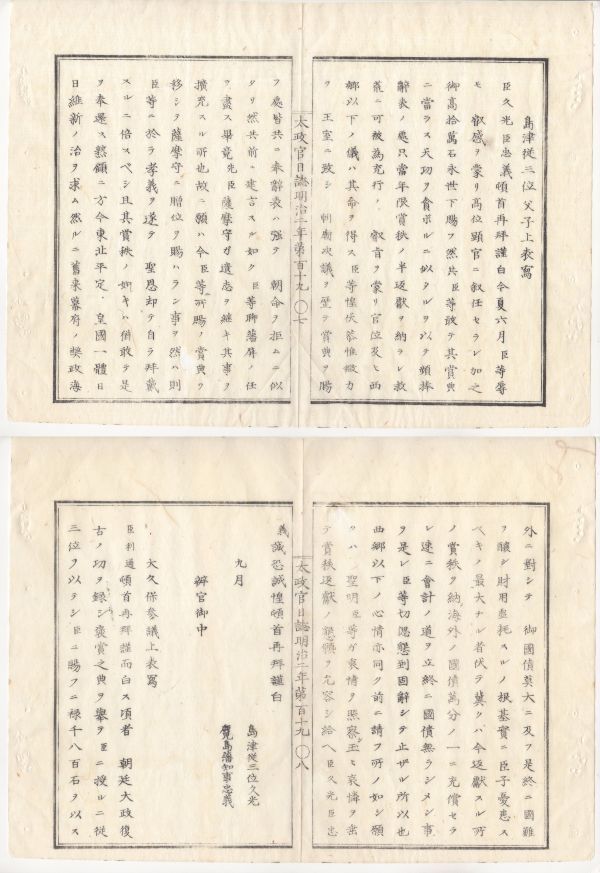 島津従三位父子上表寫
臣久光臣忠義頓首再拜謹白今夏六月臣等辱
モ 叡感ヲ蒙リ高位顕官ニ叙任セラレ加之
御高拾萬石永世下賜フ然共臣等敢テ其賞典
ニ當ラス天功ヲ貪ホルニ似タルヲ以テ頻捧
辭表ノ處只當年限賞秩ノ半返獻ヲ納ラレ救
荒ニ可被為充行ノ 叡旨ヲ蒙リ官位及ヒ西
郷以下ノ儀ハ其命ヲ得ス臣等惶伏恭惟微力
ヲ 王室ニ致シ 朝廟決議ヲ歴テ賞典ヲ賜
太政官日誌明治二年第百十九 〇七
フ處皆共ニ奉辭表ハ強テ 朝命ヲ拒ムニ似
タリ然共前ニ建言スル如ク臣等聊藩屏ノ任
ヲ盡ス畢竟先臣薩摩守カ遺志ヲ継キ其事ヲ
擴充スル所也故ニ願ハ今臣等所賜ノ賞典ヲ
移シテ薩摩守ニ贈位ヲ賜ハラン事ヲ然ハ則
臣等ニ於テ孝義ヲ遂テ 聖恩却テ自ラ拜戴
スルニ倍スベシ且其賞秩ノ如キハ猶敢テ是
ヲ奉還ス懇願ニ方今東北平定 皇國一體日
日維新ノ治ヲ求ム然ルニ舊来幕府ノ獘政海
外ニ對シテ 御國債莫大ニ及フ是終ニ國難
ヲ醸シ財用虚耗スルノ根基實ニ臣子憂恚ス
ベキノ最大ナル者伏テ冀クハ今返獻スル所
ノ賞秩ヲ納海外ノ國債萬分ノ一ニ充償セラ
レ速ニ會計ノ道ヲ立終ニ國債無ラシメン事
ヲ是レ臣等切偲懇到固辭シテ止ザル所以也
西郷以下ノ心情亦同ク前ニ請フ所ノ如シ願
クハ 聖明臣等ガ衷情ヲ照察玉ヒ哀憐ヲ垂
テ賞秩返獻ノ懇願ヲ允容シ給ヘ臣久光臣忠
太政官日誌明治二年第百十九 〇八
義誠恐誠惶頓首再拜謹白
島津従三位久光
九月 鹿児島藩知事忠義
辨官御中
大久保参議上表寫
臣利通頓首再拜謹而白ス頃者 朝廷大政復
古ノ功ヲ録シ褒賞之典ヲ擧ヲ臣ニ授ルニ従
三位ヲ以テシ臣ニ賜フニ禄千八百石ヲ以ス